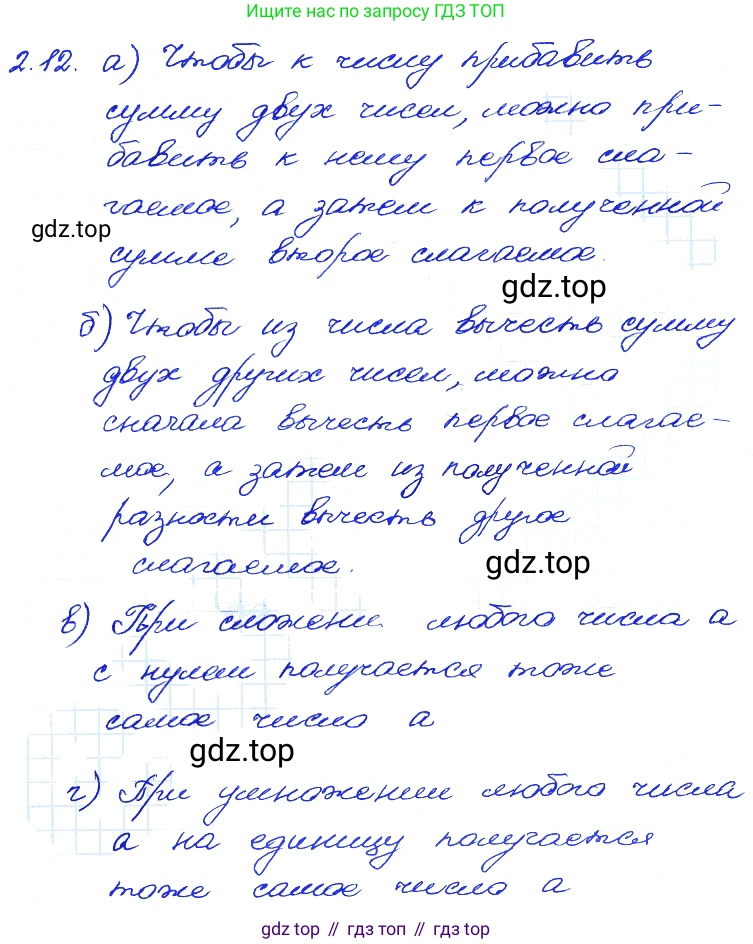 Ищите нас по запросу ГДЗ ТОП
2.12. а) Чтобы к числу прибавить
сумму двух чисел, можно при-
бавить к нему первое сла-
гаемое, а затем к полученной
gdz.top
сумме второе слагаемое.
gdz.top
б) Чтобы из числа вычесть сумму
двух других чисел, можно
сначала вычесть первое слагае-
мое, а затем из полученной
разности вычесть другое
слагаемое.
gdz.top
в) При сложении любого числа а
с нулем получается тоже
самое число а
gdz.top
г) При умножении любого числа
а на единицу получается
тоже самое число а
gdz.top // гдз топ // gdz.top // гдз топ